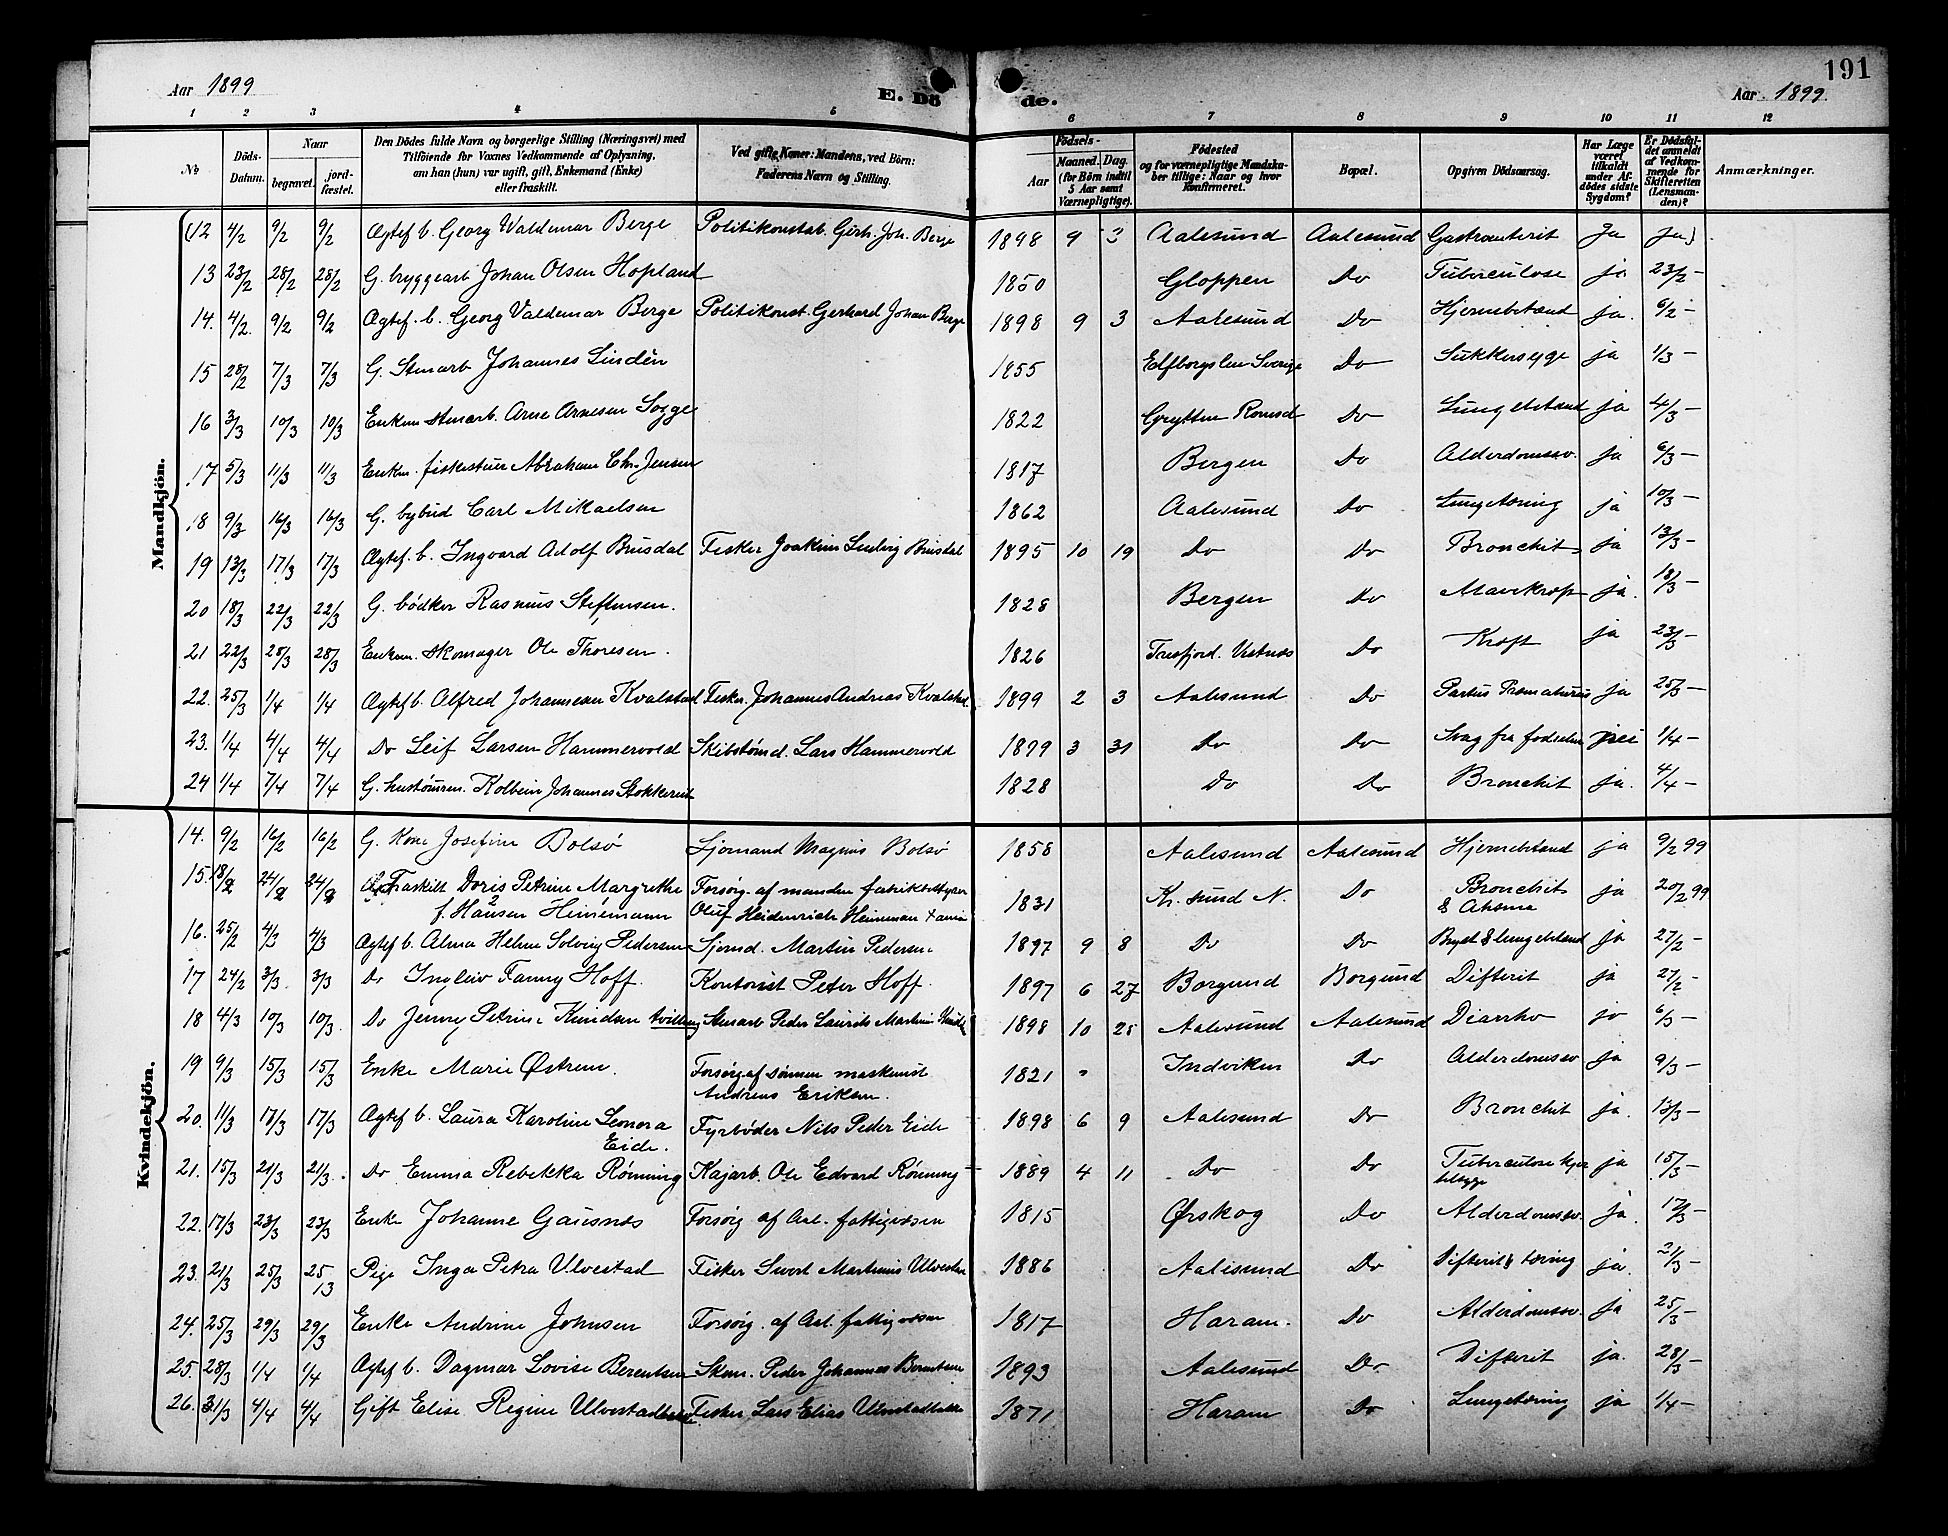 191
Aar 1899
E. Dö de.
Aar 1899.
1 2 3 4 5 6 7 8 9 10 11 12
No
Döds-Datum.
Naar
begravet.
jord-fæstet.
Den Dödes fulde Navn og borgerlige Stilling (Næringsvei) med
Tilföiende for Voxnes Vedkommende af Oplysning,
om han (hun) var ugift, gift, Enkemand (Enke)
eller fraskilt.
Ved gifte Koner: Mandens, ved Börn:
Faderens Navn og Stilling.
Födsels-
Aar
Maaned. Dag.
(for Börn indtil
5 Aar samt
Værnepligtige).
Födested
og for værnepligtige Mandska-
ber tillige: Naar og hvor
konfirmeret.
Bopæl.
Opgiven Dödsaarsag.
Har Læge
været
tilkaldt
under Af-
dödes sidste
Sygdom?
Er Dödsfal-
det anmeldt
af Vedkom-
mende for
Skifteretten
(Lensman-
den)?
Anmærkninger.
Mandkjön.
(12 4/2 9/2 9/2 Ægtef b. Georg Valdemar Berge Politikonstab. Gerh. Joh. Berge 1898 9 3 Aalesund Aalesund Gastroenterit Ja ja)
13 23/2 28/2 28/2 G. bryggearb Johan Olsen Hopland 1850 Gloppen Do Tuberculose ja 23/2 –
14. 4/2. 9/2 9/2 Ægtef. b. Georg Valdemar Berge Politikonst. Gerhard Johan Berge 1898 9 3 Aalesund Do Hjernebetænd ja. 6/2 –
15 28/2 7/3 7/3 G. Stenarb Johannes Lindén 1855 Elfborgslen Sverige Do Sukkersyge ja 1/3 –
16 3/3 10/3 10/3 Enkem stenarb. Arne Arnesen Sogge 1822 Grytten Romsd Do Lungebetænd ja 4/3 –
17 5/3 11/3 11/3 Enkm. fiskestuer Abraham Chr. Jensen 1817 Bergen Do Alderdomssv. ja 6/3 –
18 9/3 16/3 16/3 G. bybud Carl Mikaelsen 1862 Aalesund Do Lungetæring ja 10/3 –
19 13/3 17/3 17/3 Ægtef. b. Ingvard Adolf Brusdal Fisker Joakim Ludvig Brusdal 1895 10 19 Do Do Bronchit ja 13/3 –
20 18/3 22/3 22/3 G. bödker Rasmus Steffensen. 1828 Bergen Do Mavekræft ja. 18/3 –
21 22/3 28/3 28/3 Enkem. Skomager Ole Thoresen. 1826 Tresfjord. Vestnes Do Kræft ja 23/3 –
22. 25/3 1/4 1/4 Ægtef b. Alfred Johannesen Kvalstad Fisker Johannes Andreas Kvalstad 1899 2 3 Aalesund Do Partus Præmaturus ja 25/3 –
23. 1/4 4/4 4/4 Do Leif Larsen Hammervold Skibstømd. Lars Hammervold 1899 3 31 Do Do Svag fra fødselen nei 1/4 –
24 1/4 7/4 7/4 G. hustömren. Kolbein Johannes Stokkereit 1828 Do Do Bronchit ja. 4/4 –
Kvindekjön.
14. 9/2 16/2 16/2 G. Kone Josefine Bolsö Sjomand Magnus Bolsö 1858 Aalesund Aalesund Hjernebetænd ja 9/2 99
15. 18/2 24/2 24/2 Fraskilt Doris Petrine Margrethe Forsörg. af manden fabrikbestyrer 1831 Kr.sund N. Do Bronchit ja 20/2 99
f. Hansen Heinemann Oluf Heidenrich Heineman & Astma
16. 25/2 4/3 4/3 Ægtef b. Alma Helene Solveig Pedersen Sjomd. Martin Pedersen 1897 9 8 Do Do Bryst & lungebetænd ja 27/2 –
17 24/2 3/3 3/3 Do Ingleiv Fanny Hoff Kontorist Peter Hoff. 1897 6 27 Borgund Borgund Difterit ja 27/2 –
18 4/3 10/3 10/3. Do Jenny Petrine Knudsen tvilling Stenarb Peder Laurits Martin 1898 10 25 Aalesund Aalesund Diarrho ja 6/3 –
19 9/3 15/3 15/3 Enke Marie Østrem. Forsörg af sönnen maskinist 1821 Indviken Do Alderdomssv ja 9/3 –
Andreas Eriksen.
20. 11/3 17/3 17/3 Ægtef b. Laura Karoline Leonora Fyrböder Nils Peder Eide 1898 6 9 Aalesund Do Bronchit ja. 13/3 –
Eide.
21. 15/3 21/3 21/3. Do Emma Rebekka Rönning Kajarb. Ole Edvard Rönning 1889 4 11 Do Do Tuberculose ja 15/3 –
22. 17/3 23/3 23/3 Enke Johanne Gausnes Forsörg af Aal. fattigvæsen 1815 Ørskog Do Alderdomssv. ja. 17/3 –
23. 21/3 25/3 25/3 Pige Inga Petra Ulvestad Fisker Sivert Martinus Ulvestad 1886 Aalesund Do Difterit & tæring ja. 21/3 –
24. 25/3 29/3 29/3 Enke Andrine Johnsen Forsörg. af Aal. fattigvæsen 1817 Haram. Do Alderdomssv. ja 25/3 –
25. 28/3 1/4 1/4 Ægtef b. Dagmar Lovise Berentsen Skom. Peder Johannes Berentsen 1893 Aalesund Do Difterit ja. 28/3 –
26. 31/3 4/4 4/4 Gift Elise Regine Ulvestadbakke Fisker Lars Elias Ulvestadbakke 1871 Haram Do Lungetæring ja 1/4 –